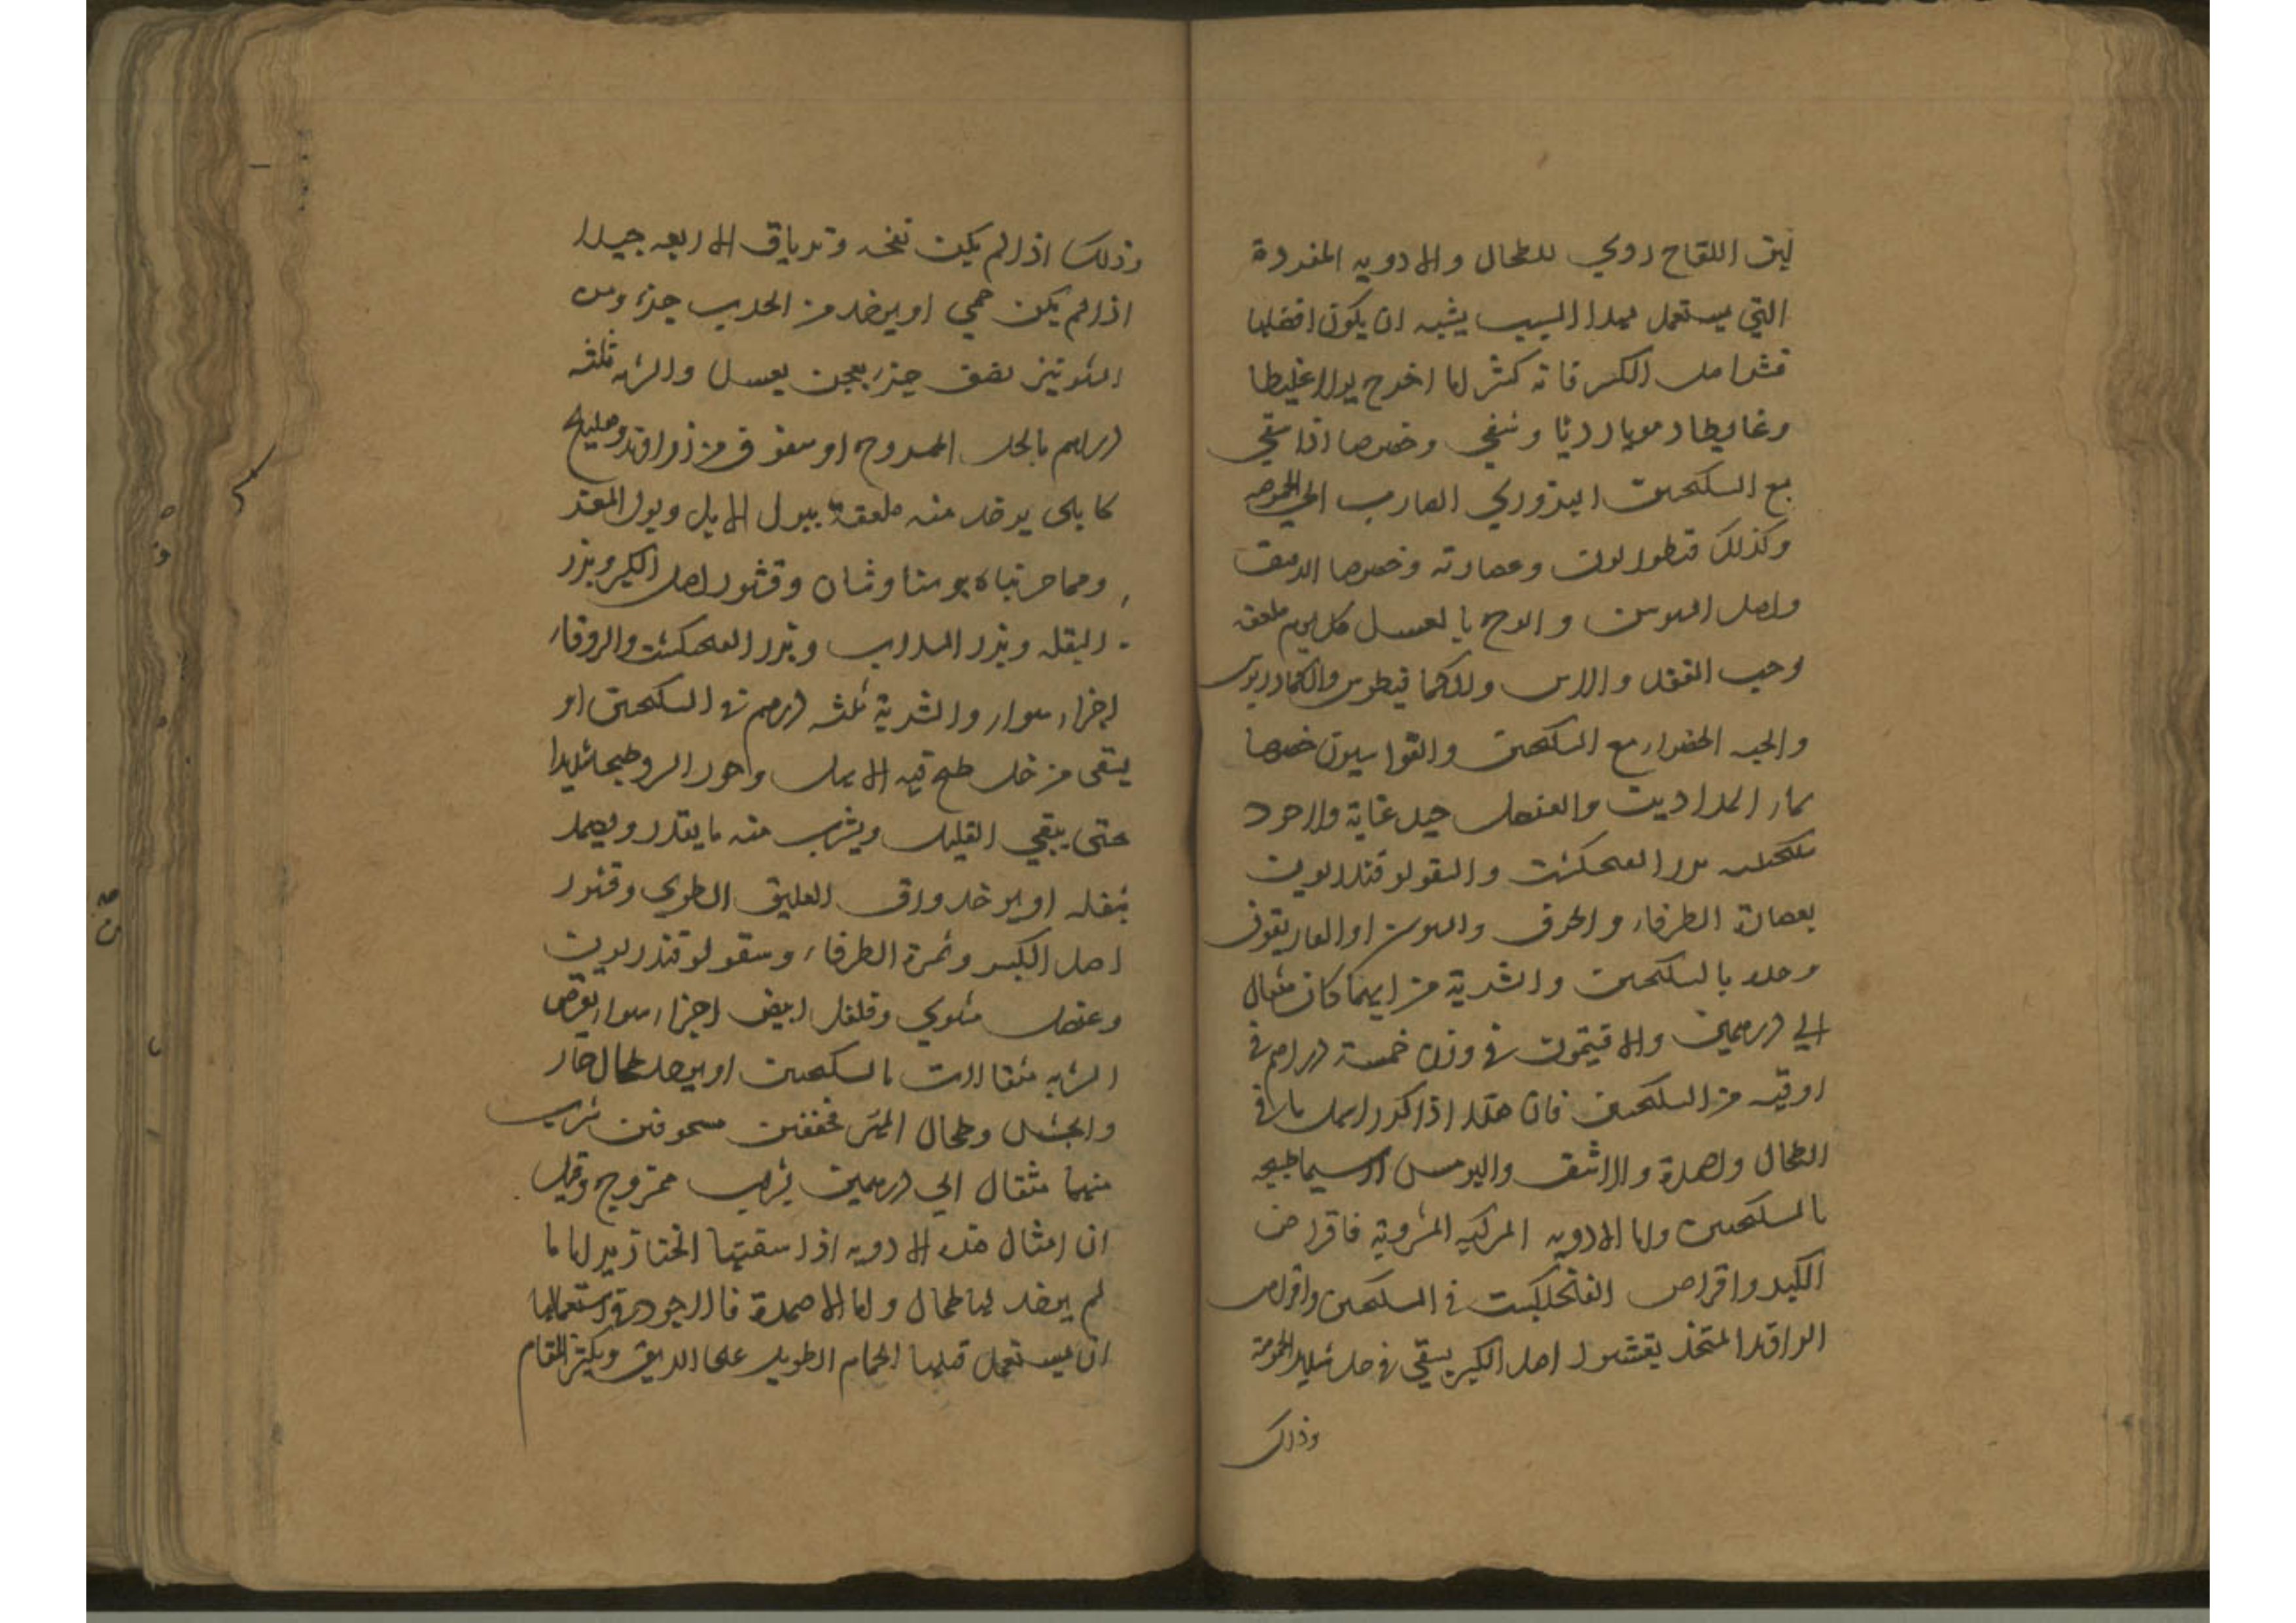 لبن اللقاح روي للطحال والادويه المفردة
التي يستعمل لهذا السبب يشبه ان يكون افضلها
قشر اصل الكبر فانه كثير اما اخرج بولا غليظا
وغايطا دمويا رديا وشفي وخصوصا اذا سقي
مع السكنجبين البزوري الضارب الي الحموضه
وكذلك قنطوريون وعصارته وخصوصا الدقيق
واصل السوسن والوج بالعسل كل يوم ملعقه
وحب الفقد والاس والكمافيطوس والكمادريوس
والحبه الخضراء مع السكنجبين والقواسيون خصوصا
بماء الحدادين والعنصل جيد غاية والاجود
سكنجبينه بزر الفنجنكشت والسقولوقندريون
بعصارة الطرفاء والحرف والسوسن او الغاريقون
وحده بالسكنجبين والشربة من ايهما كان مثقال
الي درهمين والافتيمون في وزن خمسة دراهم في
اوقيه من السكنجبين فان هذا اذا كرر اسهل ما في
الطحال واضمره والاشق والترمس لا سيما طبيخه
بالسكنجبين واما الادويه المركبه المشروبة فاقراص
الكبر واقراص الفنجنكشت في السكنجبين واقراص
الراوند المتخذ بقشور اصل الكبر يسقي في خل شديد الحموضة
وذلك
وذلك اذا لم يكن نفخه وترياق الاربعه جيدا
اذا لم يكن حمي او يوخذ من الحديد جزء ومن
الشونيز نصف جزء يعجن بعسل والشربه ثلثه
دراهم بالخل الممزوج او سفوف من زراوند وهليلج
كابلي يوخذ منه ملعقة ببول الابل وبول المعز
ومما جربناه بوستاوشان وقشور اصل الكبر وبزر
البقله وبزر السداب وبزر الفنجنكشت والزوفاء
اجزاء سواء والشربة ثلثه درهم في السكنجبين او
يسقي من خل طبخ فيه الابهل وجوز السرو طبخا شديدا
حتى يبقي القليل ويشرب منه ما يقدر ويضمد
بثفله او يوخذ ورق العليق الطري وقشور
اصل الكبر وثمرة الطرفاء وسقولوقندريون
وعنصل مشوي وفلفل ابيض اجزاء سواء يقرص
الشربه مثقالان بالسكنجبين او يوخذ طحال حمار
وطحال المهر مجففين مسحوقين يشرب
منهما مثقال الي درهمين بشراب ممزوج وقيل
ان امثال هذه الادويه اذا سقيتها الخنازير اياما
لم يوجد لها طحال واما الاضمدة فالاجود في استعمالها
ان يستعمل قبلها الحمام الطويل على الريق ويكثر المقام